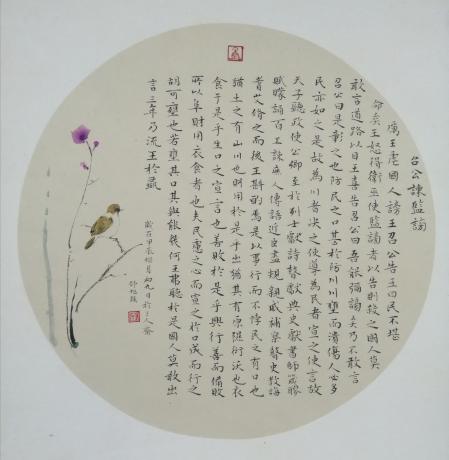 召公諫監謗
厲王虐國人謗王召公告王曰民不堪
命矣王怒得衛巫使監謗者以告則殺之國人莫
敢言道路以目王喜告召公曰吾能弭謗矣乃不敢言
召公曰是彰之也防民之口甚於防川川壅而潰傷人必多
民亦如之是故為川者決之使導為民者宣之使言故
天子聽政使公卿至於列士獻詩瞽獻典史獻書師箴瞍
賦矇誦百工諫庶人傳語近臣盡規親戚補察瞽史教誨
耆艾修之而後王斟酌焉是以事行而不悖民之有口也
猶土之有山川也財用於是乎出猶其有原隰衍沃也衣
食于是乎生口之宣言也善敗於是乎興行善而備敗
所以阜財用衣食者也夫民慮之心而宣之於口成而行之
胡可壅也若壅其口其與能幾何王弗聽於是國人莫敢出
言三年乃流王於彘
歲在甲辰月初九日於人齋